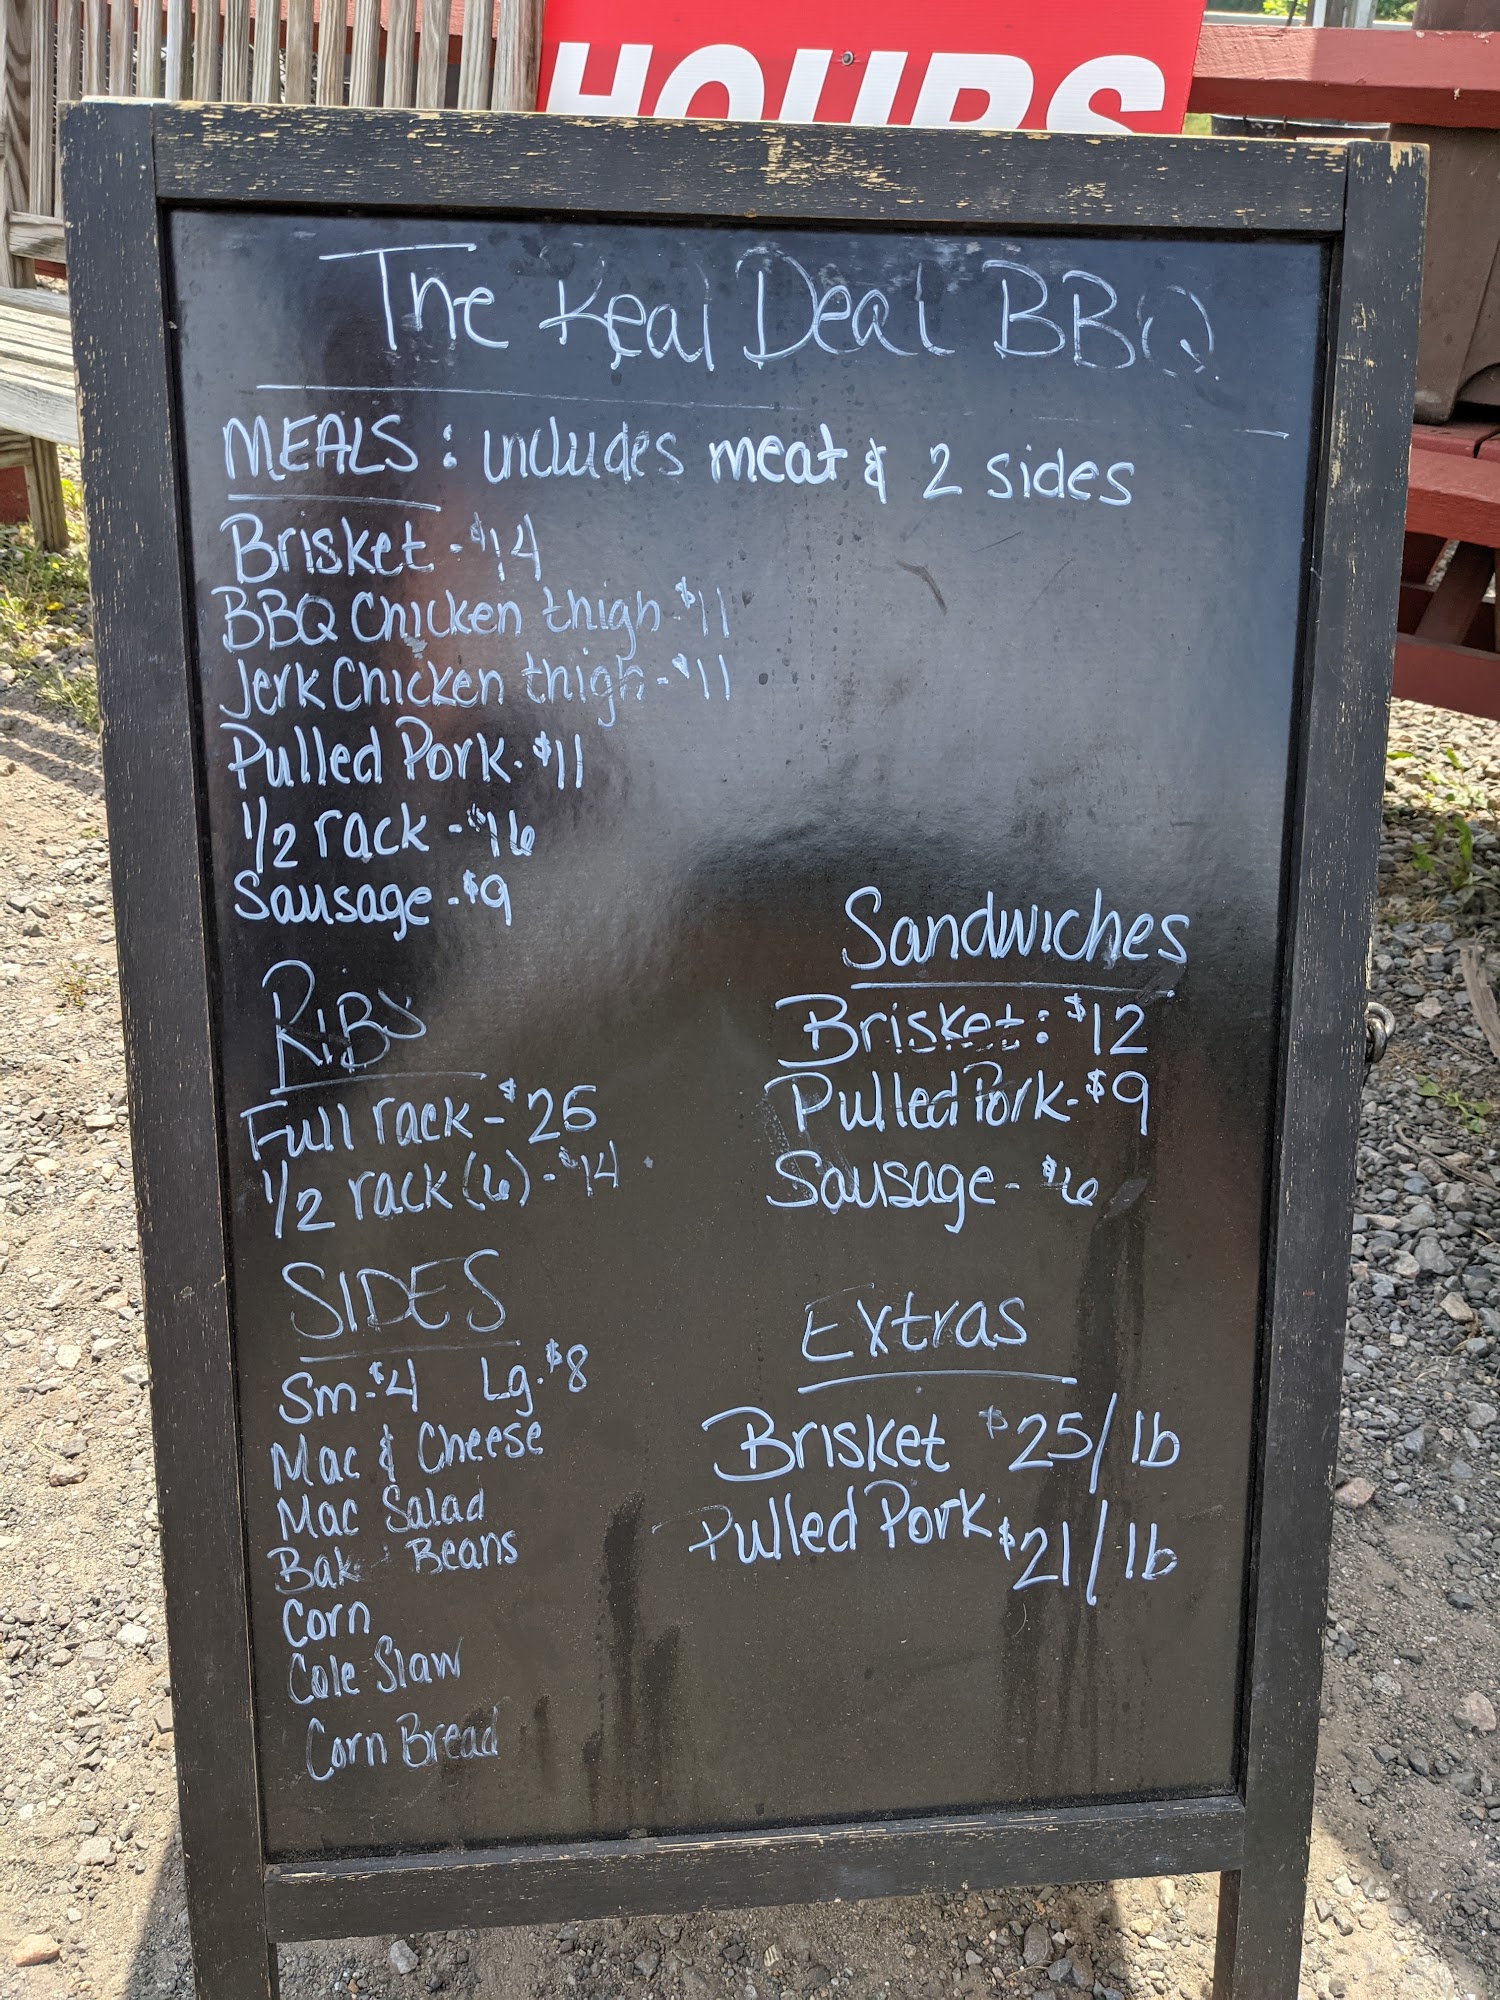 HOURS
The Real Deal BBQ
MEALS: includes meat & 2 sides
Brisket - $14
BBQ Chicken thigh - $11
Jerk Chicken thigh - $11
Pulled Pork - $11
1/2 rack - $16
Sausage - $9
RiBS
Full rack - $26
1/2 rack (6) - $14
SIDES
Sm - $4 Lg. $8
Mac & Cheese
Mac Salad
Bake Beans
Corn
Cole Slaw
Corn Bread
Sandwiches
Brisket: $12
Pulled Pork - $9
Sausage - $6
Extras
Brisket $25/lb
Pulled Pork $21/lb